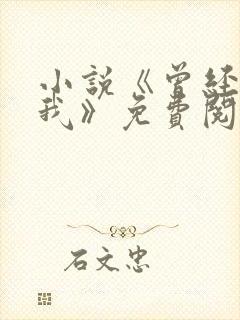 小説《曾经
我》免費閱
石文忠